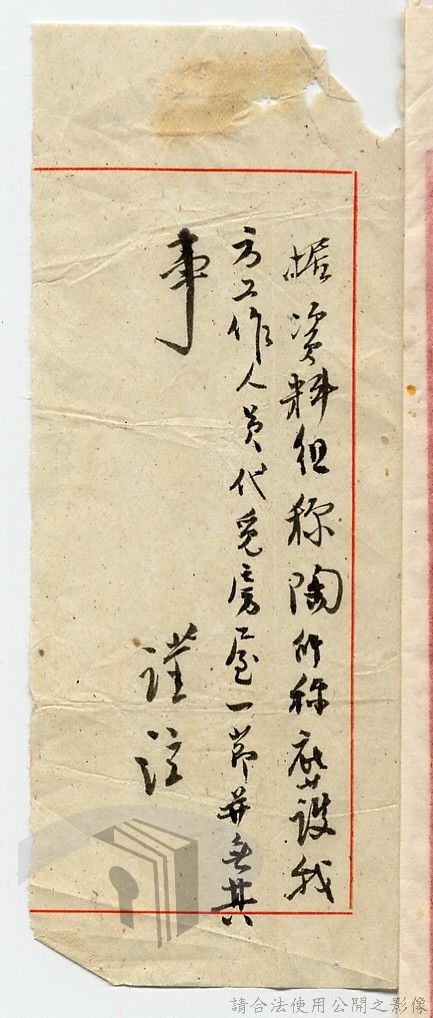 据資料組称陶所称庇護我
方工作人員代覓房屋一節并無其
事
謹註
請合法使用公開之影像